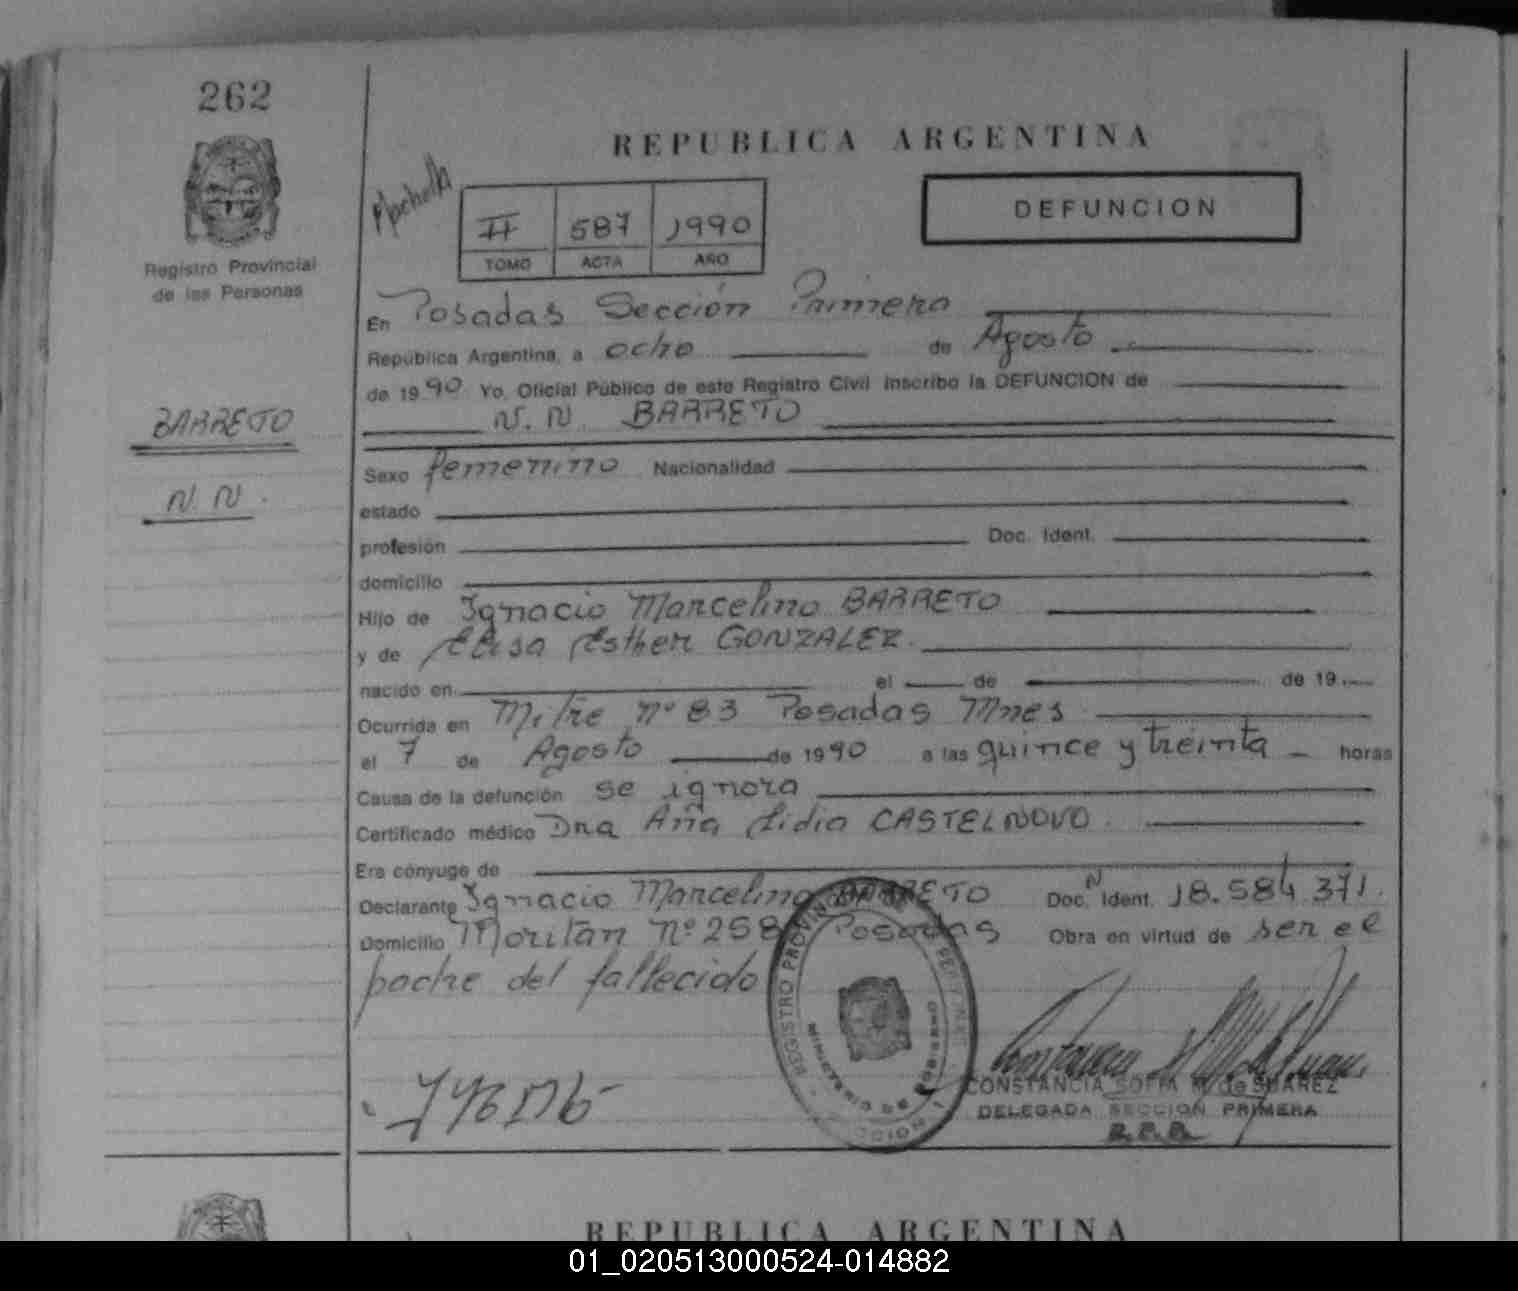 262
REPUBLICA ARGENTINA
II 587 1990
TOMO ACTA AÑO
DEFUNCION
Registro Provincial
de las Personas
En Posadas Sección Primera
República Argentina, a ocho de Agosto
de 1990 Yo, Oficial Público de este Registro Civil inscribo la DEFUNCION de
N.N. BARRETO
BARRETO
N.N.
Sexo femenino Nacionalidad
estado
profesión Doc. Ident.
domicilio
Hijo de Ignacio Marcelino BARRETO
y de Elisa Esther GONZALEZ.
nacido en el de de 19
Ocurrida en Mitre Nº 83 Posadas Mnes
el 7 de Agosto de 1990 a las quince y treinta horas
Causa de la defunción se ignora
Certificado médico Dra Ana Lidia CASTELNOVO.
Era cónyuge de
Declarante Ignacio Marcelino BARRETO Doc. N Ident. 18.584.371.
Domicilio Moritan Nº 258 Posadas Obra en virtud de ser el
padre del fallecido
REGISTRO PROVINCIAL DE
MINISTERIO DE GOBIERNO
CONSTANCIA SOFIA M. de SUAREZ
DELEGADA SECCION PRIMERA
REPUBLICA ARGENTINA
01_020513000524-014882